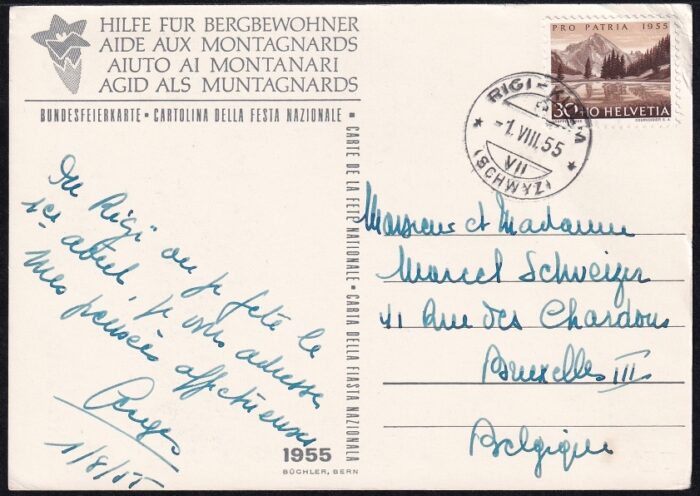 HILFE FÜR BERGBEWOHNER
AIDE AUX MONTAGNARDS
AIUTO AI MONTANARI
AGID ALS MUNTAGNARDS
BUNDESFEIERKARTE • CARTOLINA DELLA FESTA NAZIONALE •
CARTE DE LA FÊTE NATIONALE • CARTA DELLA FIASTA NAZIONALA
PRO PATRIA 1955
30+10 HELVETIA
RIGI-KULM
-1.VIII.55
VII
(SCHWYZ)
Du Rigi où je fête le
1er août, je vous adresse
mes pensées affectueuses
1/8/55
Monsieur et Madame
Marcel Schweizer
41 Rue des Chardons
Bruxelles III
Belgique
1955
BÜCHLER, BERN